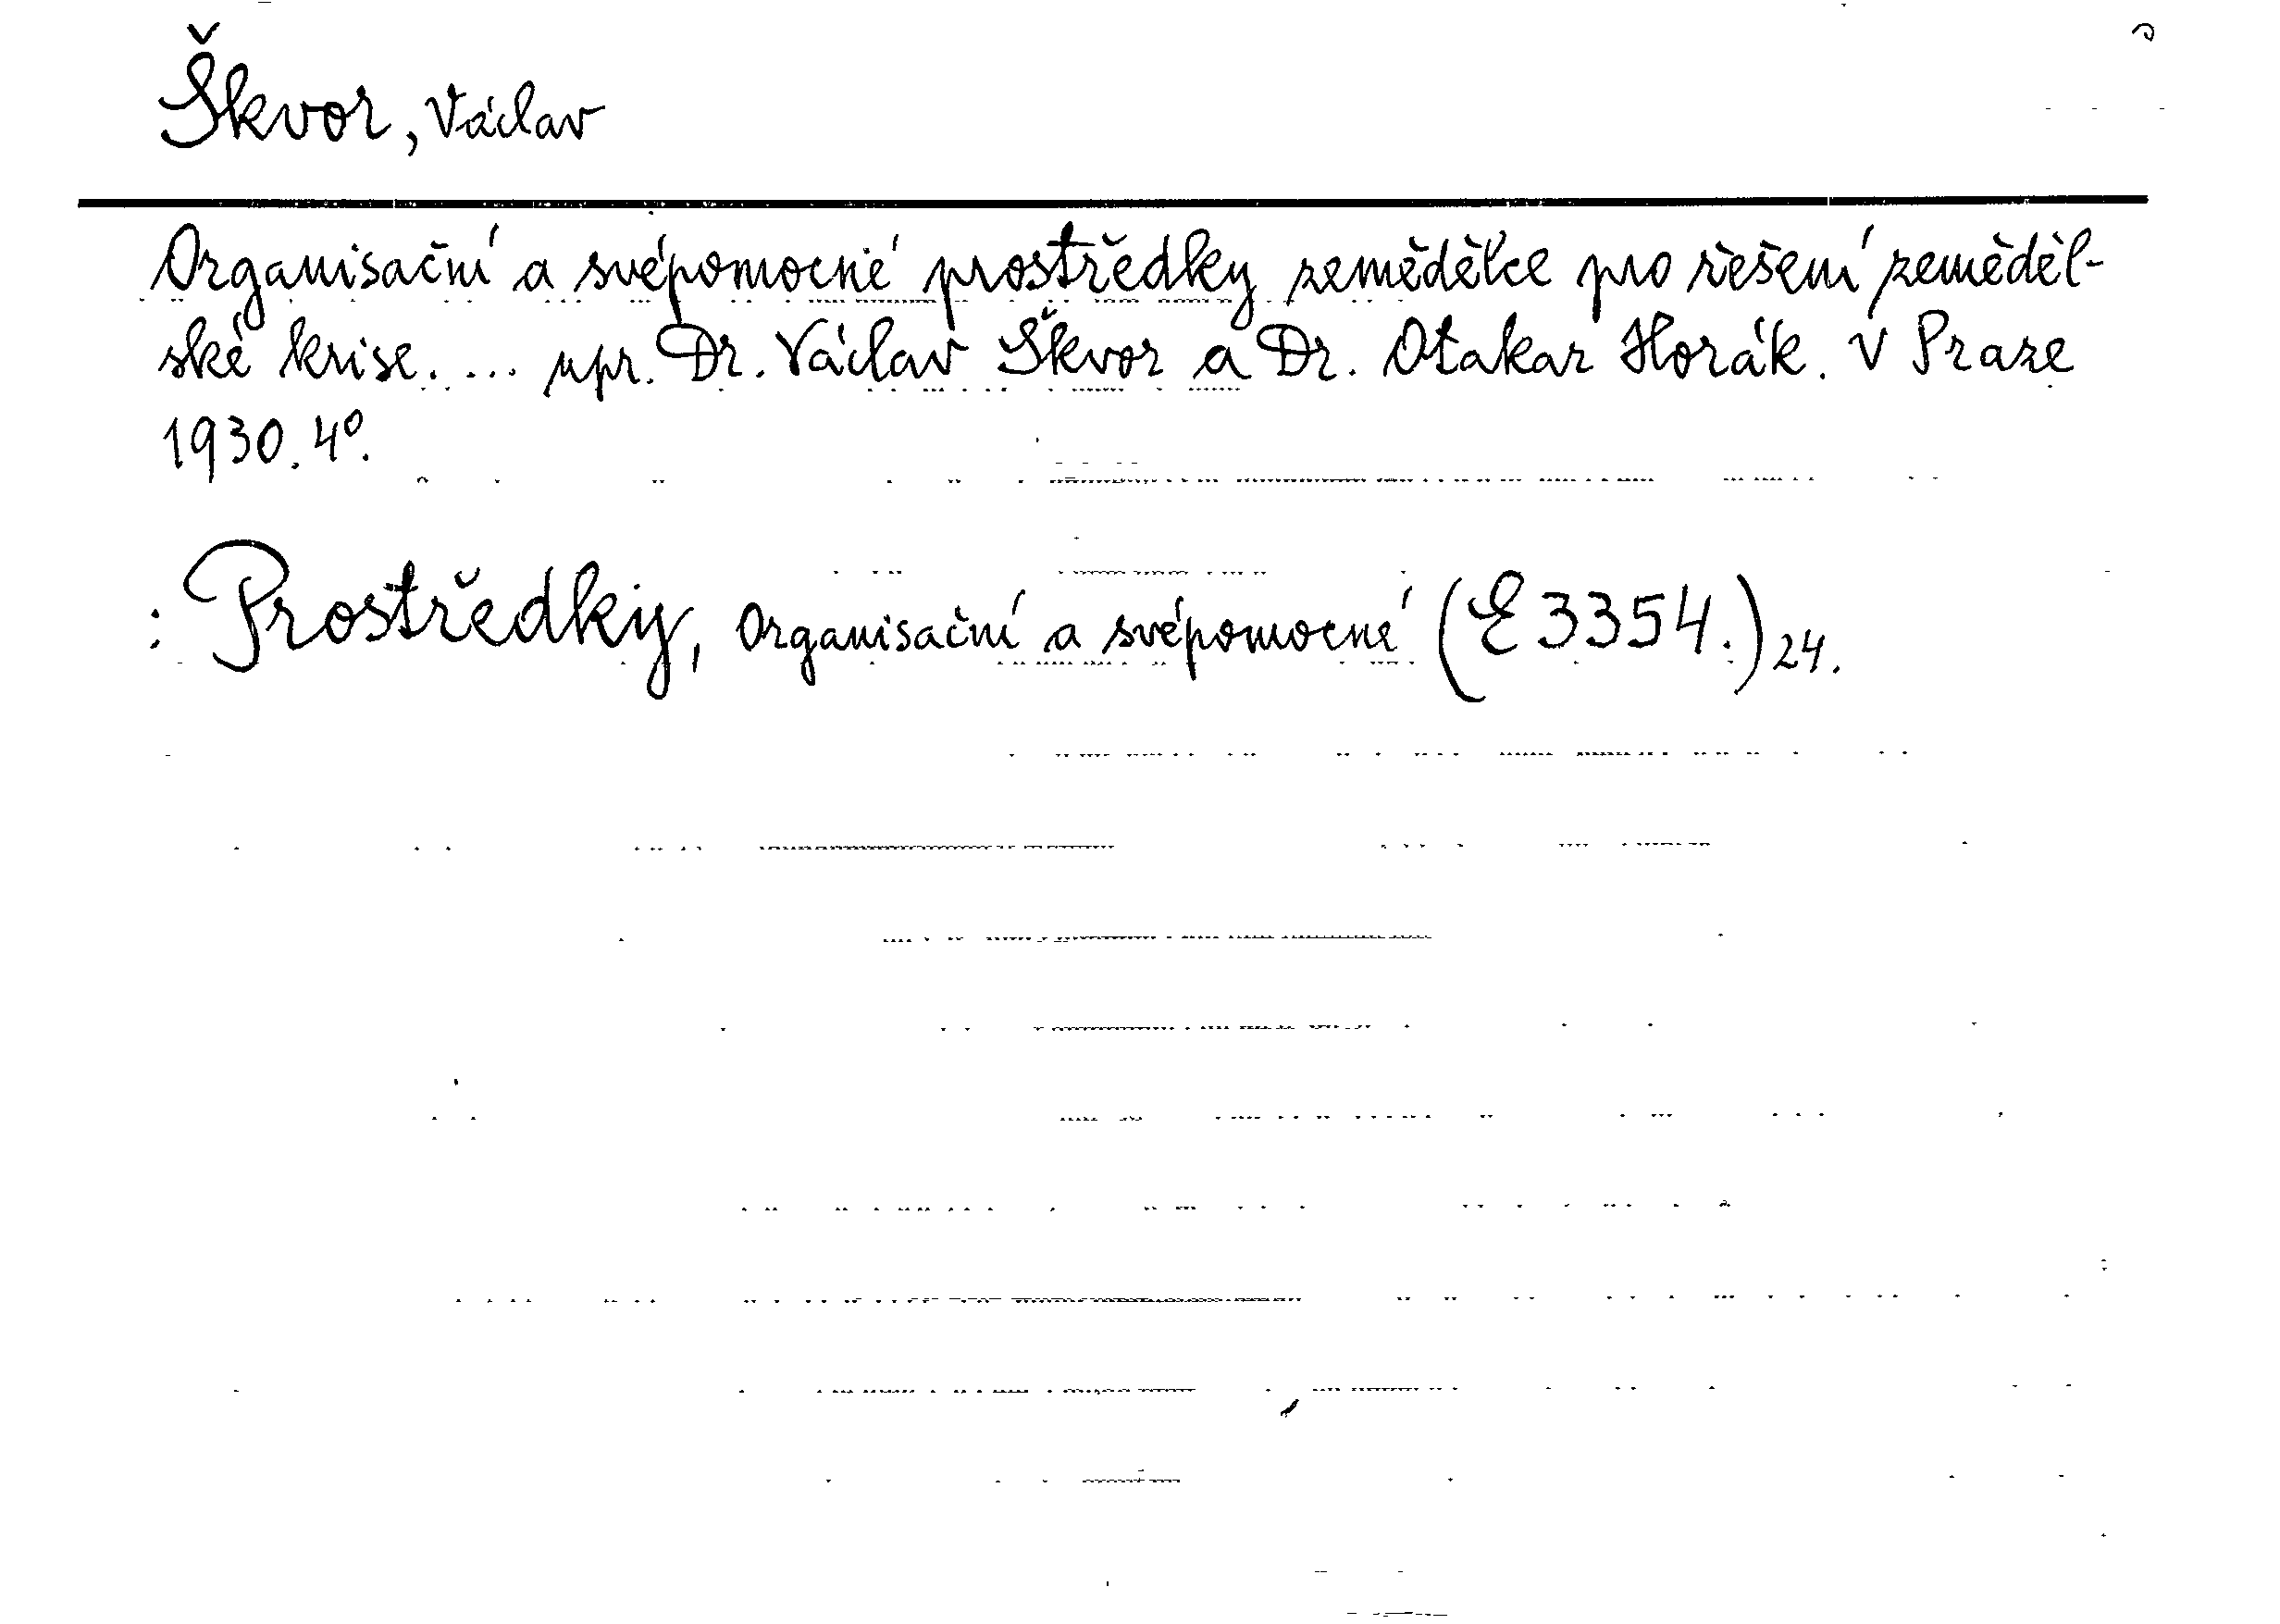 Škvor, Václav
Organisační a svépomocné prostředky zemědělce pro řešení zeměděl-
ské krise. ... upr. Dr. Václav Škvor a Dr. Otakar Horák. V Praze
1930. 4°.
: Prostředky, Organisační a svépomocné (E 3354.) 24.